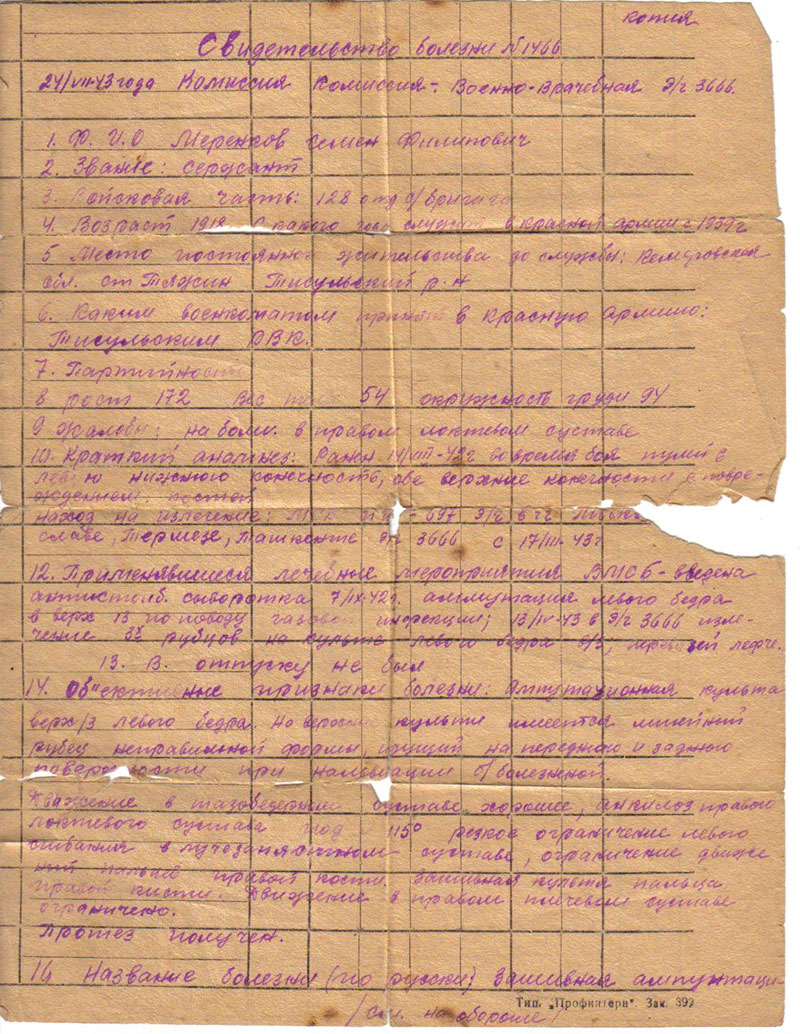 копия
Свидетельство болезни N 1466
24/VII-43 года Комиссия Комиссия - Военно-Врачебная Э/г 3666.
1. Ф. И. О Меренков Семен Филипович
2. Звание: сержант
3. Войсковая часть: 128 отд с/бригада
4. Возраст 1918 С какого служит в красной армии с 1939 г
5 Место постоянной жительства до службы: Кемеровская
обл. ст Тяжин Тисульский р-н
6. Каким военкоматом принят в красную армию:
Тисульским РВК.
7. Партийность
8 рост 172 Вес тела 54 окружность груди 94
9 жалобы: на боли в правом локтевом суставе
10. Краткий Ранен 14/VIII-42г во время боя пулей в
левую нижнюю конечность, обе верхние конечности с повре-
ждением костей
наход на излечение: Э/г в г.г.
славе, Термезе, Ташкенте Э/г 3666 с 17/III-43 г
12. Применявшиеся лечебные мероприятия введена
сыворотка 7/IX-42г. ампутация левого бедра
в верх 13 по поводу газовой инфекции; 13/IV-43 в Э/г 3666 иссе-
чение рубцов на культе левого бедра
13. В. отпуску не был
14. Об"ективные признаки болезни: Ампутационная культа
верх/3 левого бедра. На верхом культи имеется линейный
рубец неправильной формы, идущий на переднюю и заднюю
поверхности при пальпации б/болезненной.
Движение в тазобедерном суставе хорошее, анкилоз правого
локтевого сустава под 115° резкое ограничение левого
сгибания в лучезапястном суставе, ограничение движе
ний пальцев правой кости. культя пальца
правой кисти. Движение в правом плечевом суставе
ограничено.
Протез получен.
16 Название болезни (по русски)
Тип. „Профинтерн". Зак. 392
/См. на обороте/